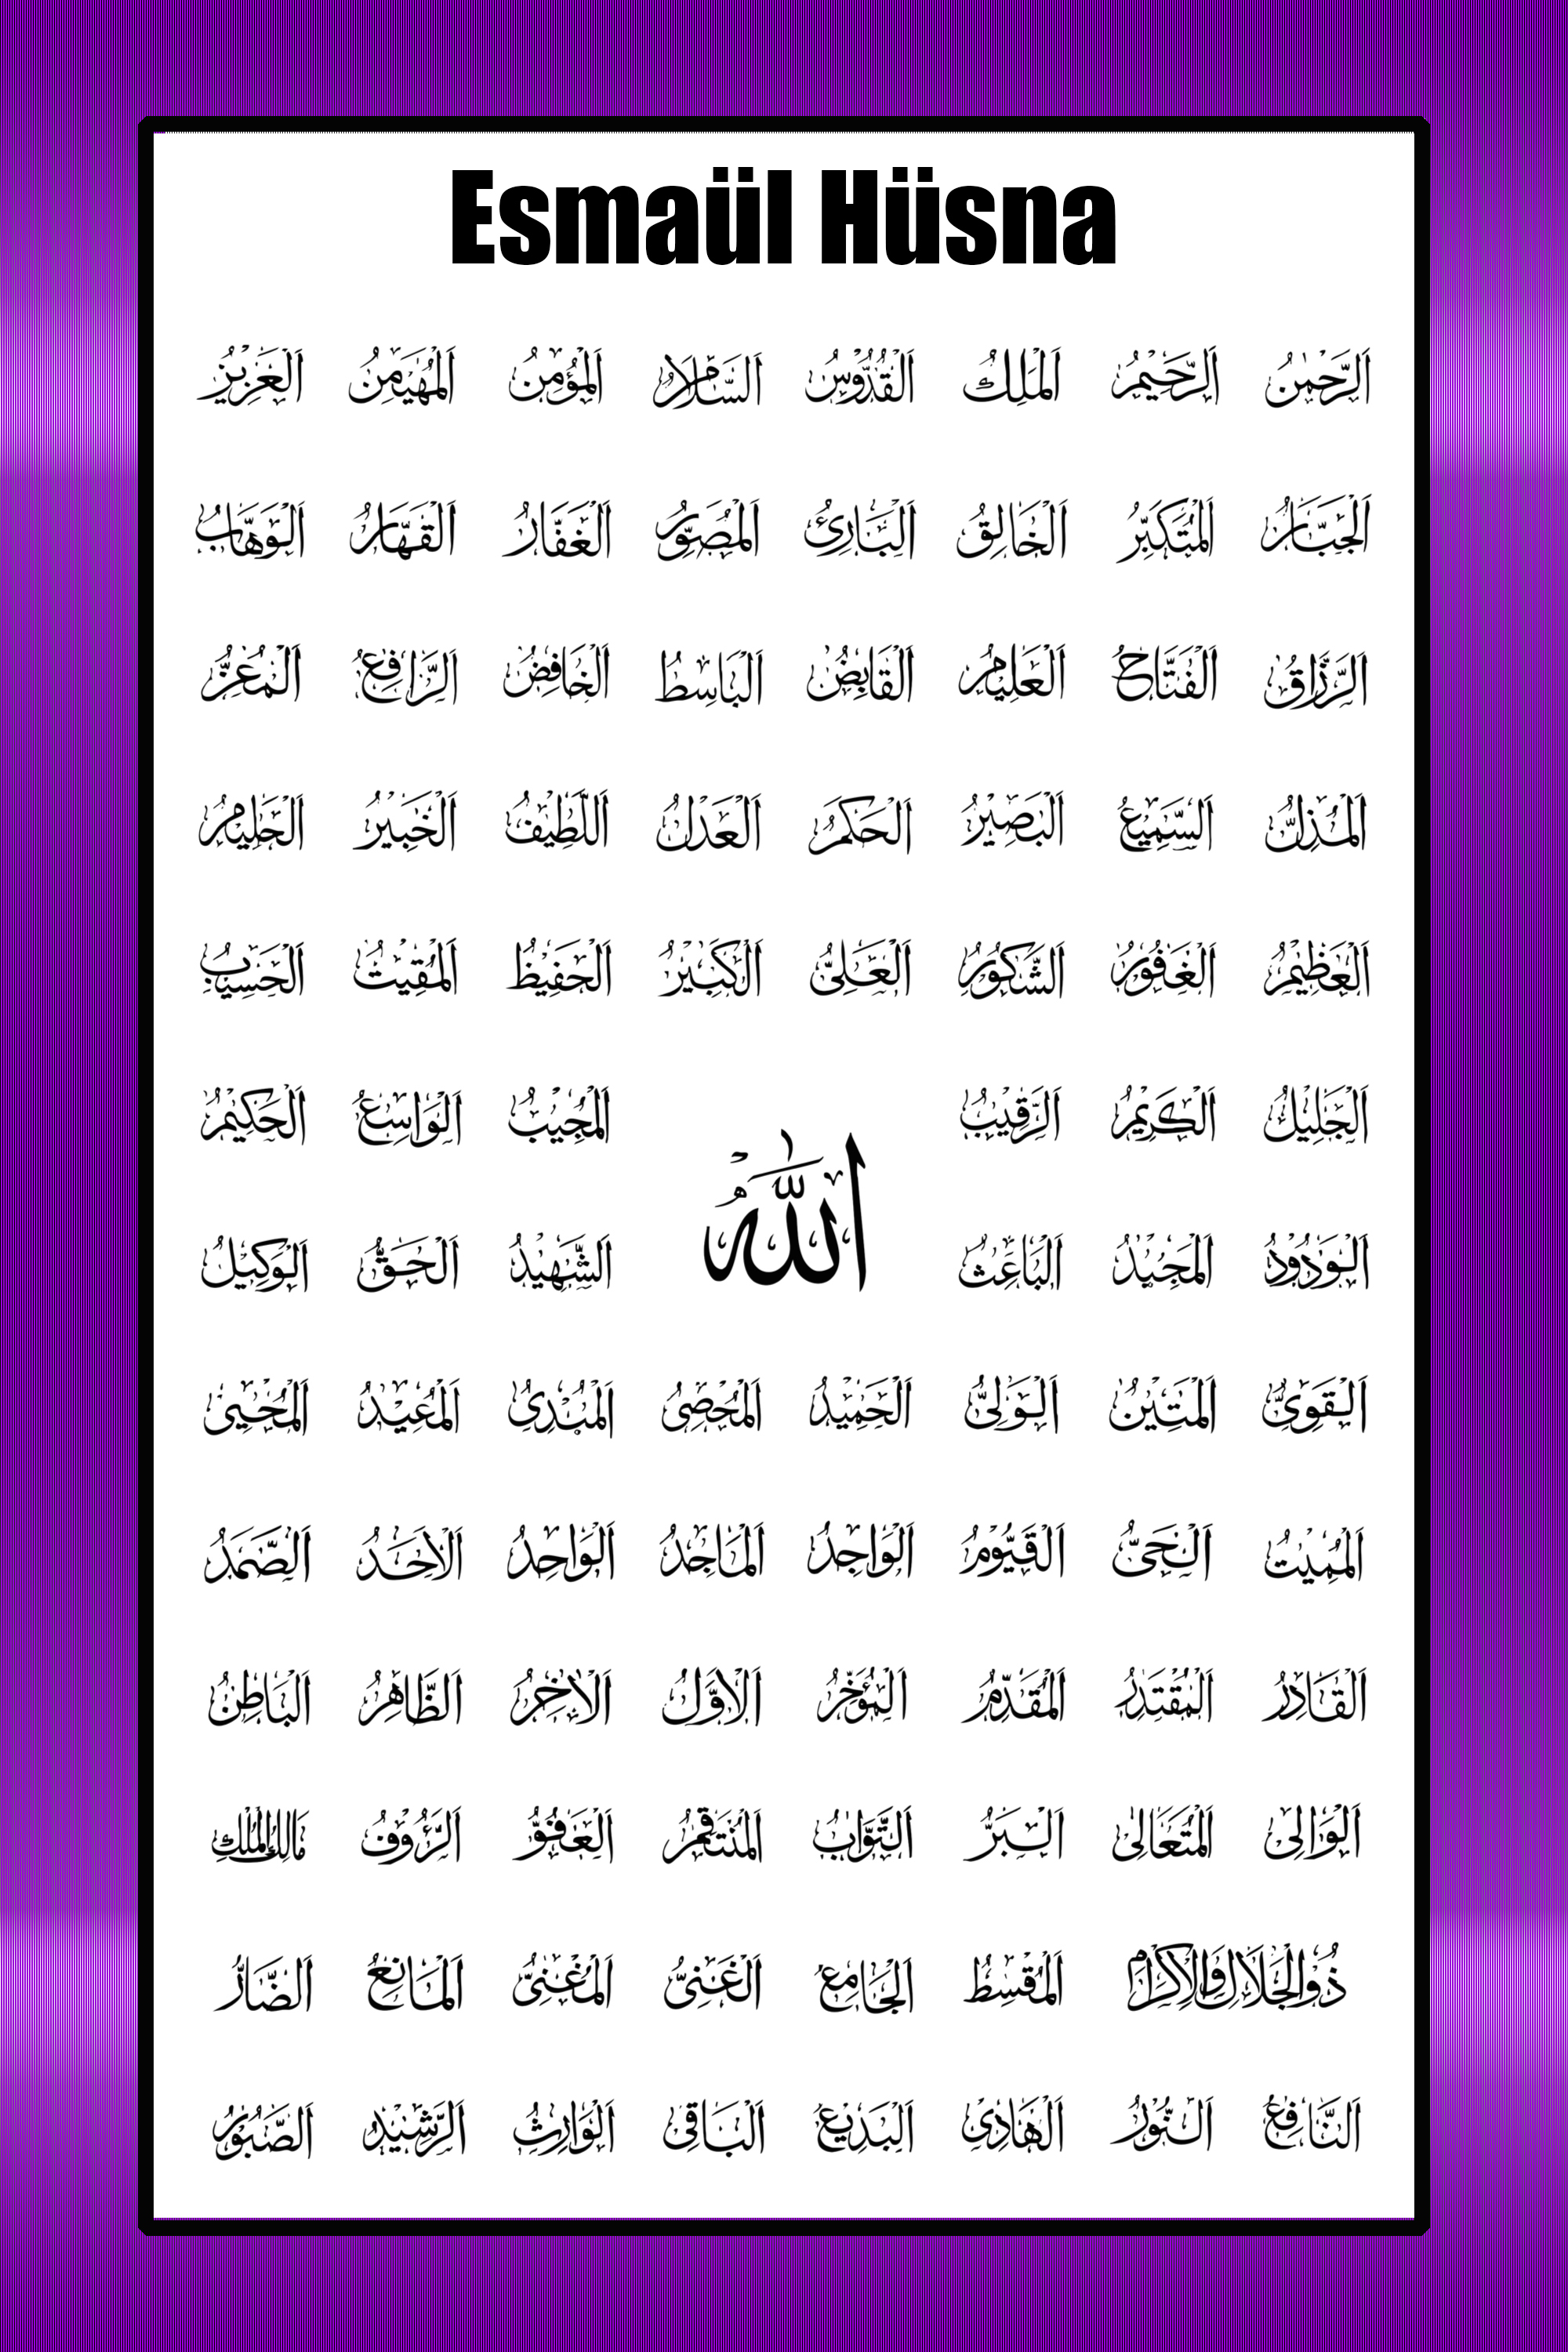 Esmaül Hüsna
اَلرَّحْمٰنُ اَلرَّحٖيمُ اَلْمَلِكُ اَلْقُدُّوسُ اَلسَّلَامُ اَلْمُؤْمِنُ اَلْمُهَيْمِنُ اَلْعَزٖيزُ
اَلْجَبَّارُ اَلْمُتَكَبِّرُ اَلْخَالِقُ اَلْبَارِئُ اَلْمُصَوِّرُ اَلْغَفَّارُ اَلْقَهَّارُ اَلْوَهَّابُ
اَلرَّزَّاقُ اَلْفَتَّاحُ اَلْعَلِيمُ اَلْقَابِضُ اَلْبَاسِطُ اَلْخَافِضُ اَلرَّافِعُ اَلْمُعِزُّ
اَلْمُذِلُّ اَلسَّمِيعُ اَلْبَصِيرُ اَلْحَكَمُ اَلْعَدْلُ اَللَّطِيفُ اَلْخَبِيرُ اَلْحَلِيمُ
اَلْعَظِيمُ اَلْغَفُورُ اَلشَّكُورُ اَلْعَلِىُّ اَلْكَبِيرُ اَلْحَفِيظُ اَلْمُقِيتُ اَلْحَسِيبُ
اَلْجَلِيلُ اَلْكَرِيمُ اَلرَّقِيبُ اَلْمُجِيبُ اَلْوَاسِعُ اَلْحَكِيمُ
اَللّٰهُ
اَلْوَدُودُ اَلْمَجِيدُ اَلْبَاعِثُ اَلشَّهِيدُ اَلْحَقُّ اَلْوَكِيلُ
اَلْقَوِىُّ اَلْمَتِينُ اَلْوَلِىُّ اَلْحَمِيدُ اَلْمُحْصِى اَلْمُبْدِئُ اَلْمُعِيدُ اَلْمُحْيِى
اَلْمُمِيتُ اَلْحَىُّ اَلْقَيُّومُ اَلْوَاجِدُ اَلْمَاجِدُ اَلْوَاحِدُ اَلْاَحَدُ اَلصَّمَدُ
اَلْقَادِرُ اَلْمُقْتَدِرُ اَلْمُقَدِّمُ اَلْمُؤَخِّرُ اَلْاَوَّلُ اَلْاٰخِرُ اَلظَّاهِرُ اَلْبَاطِنُ
اَلْوَالِى اَلْمُتَعَالِى اَلْبَرُّ اَلتَّوَّابُ اَلْمُنْتَقِمُ اَلْعَفُوُّ اَلرَّؤُوفُ مَالِكُ الْمُلْكِ
ذُو الْجَلَالِ وَالْاِكْرَامِ اَلْمُقْسِطُ اَلْجَامِعُ اَلْغَنِىُّ اَلْمُغْنِىُّ اَلْمَانِعُ اَلضَّارُّ
اَلنَّافِعُ اَلنُّورُ اَلْهَادِى اَلْبَدِيعُ اَلْبَاقِى اَلْوَارِثُ اَلرَّشِيدُ اَلصَّبُورُ